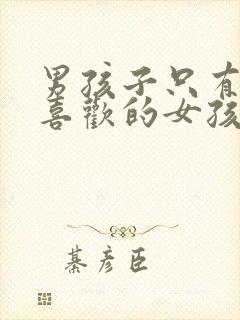 男孩子只有
喜歡的女孩
綦彦臣